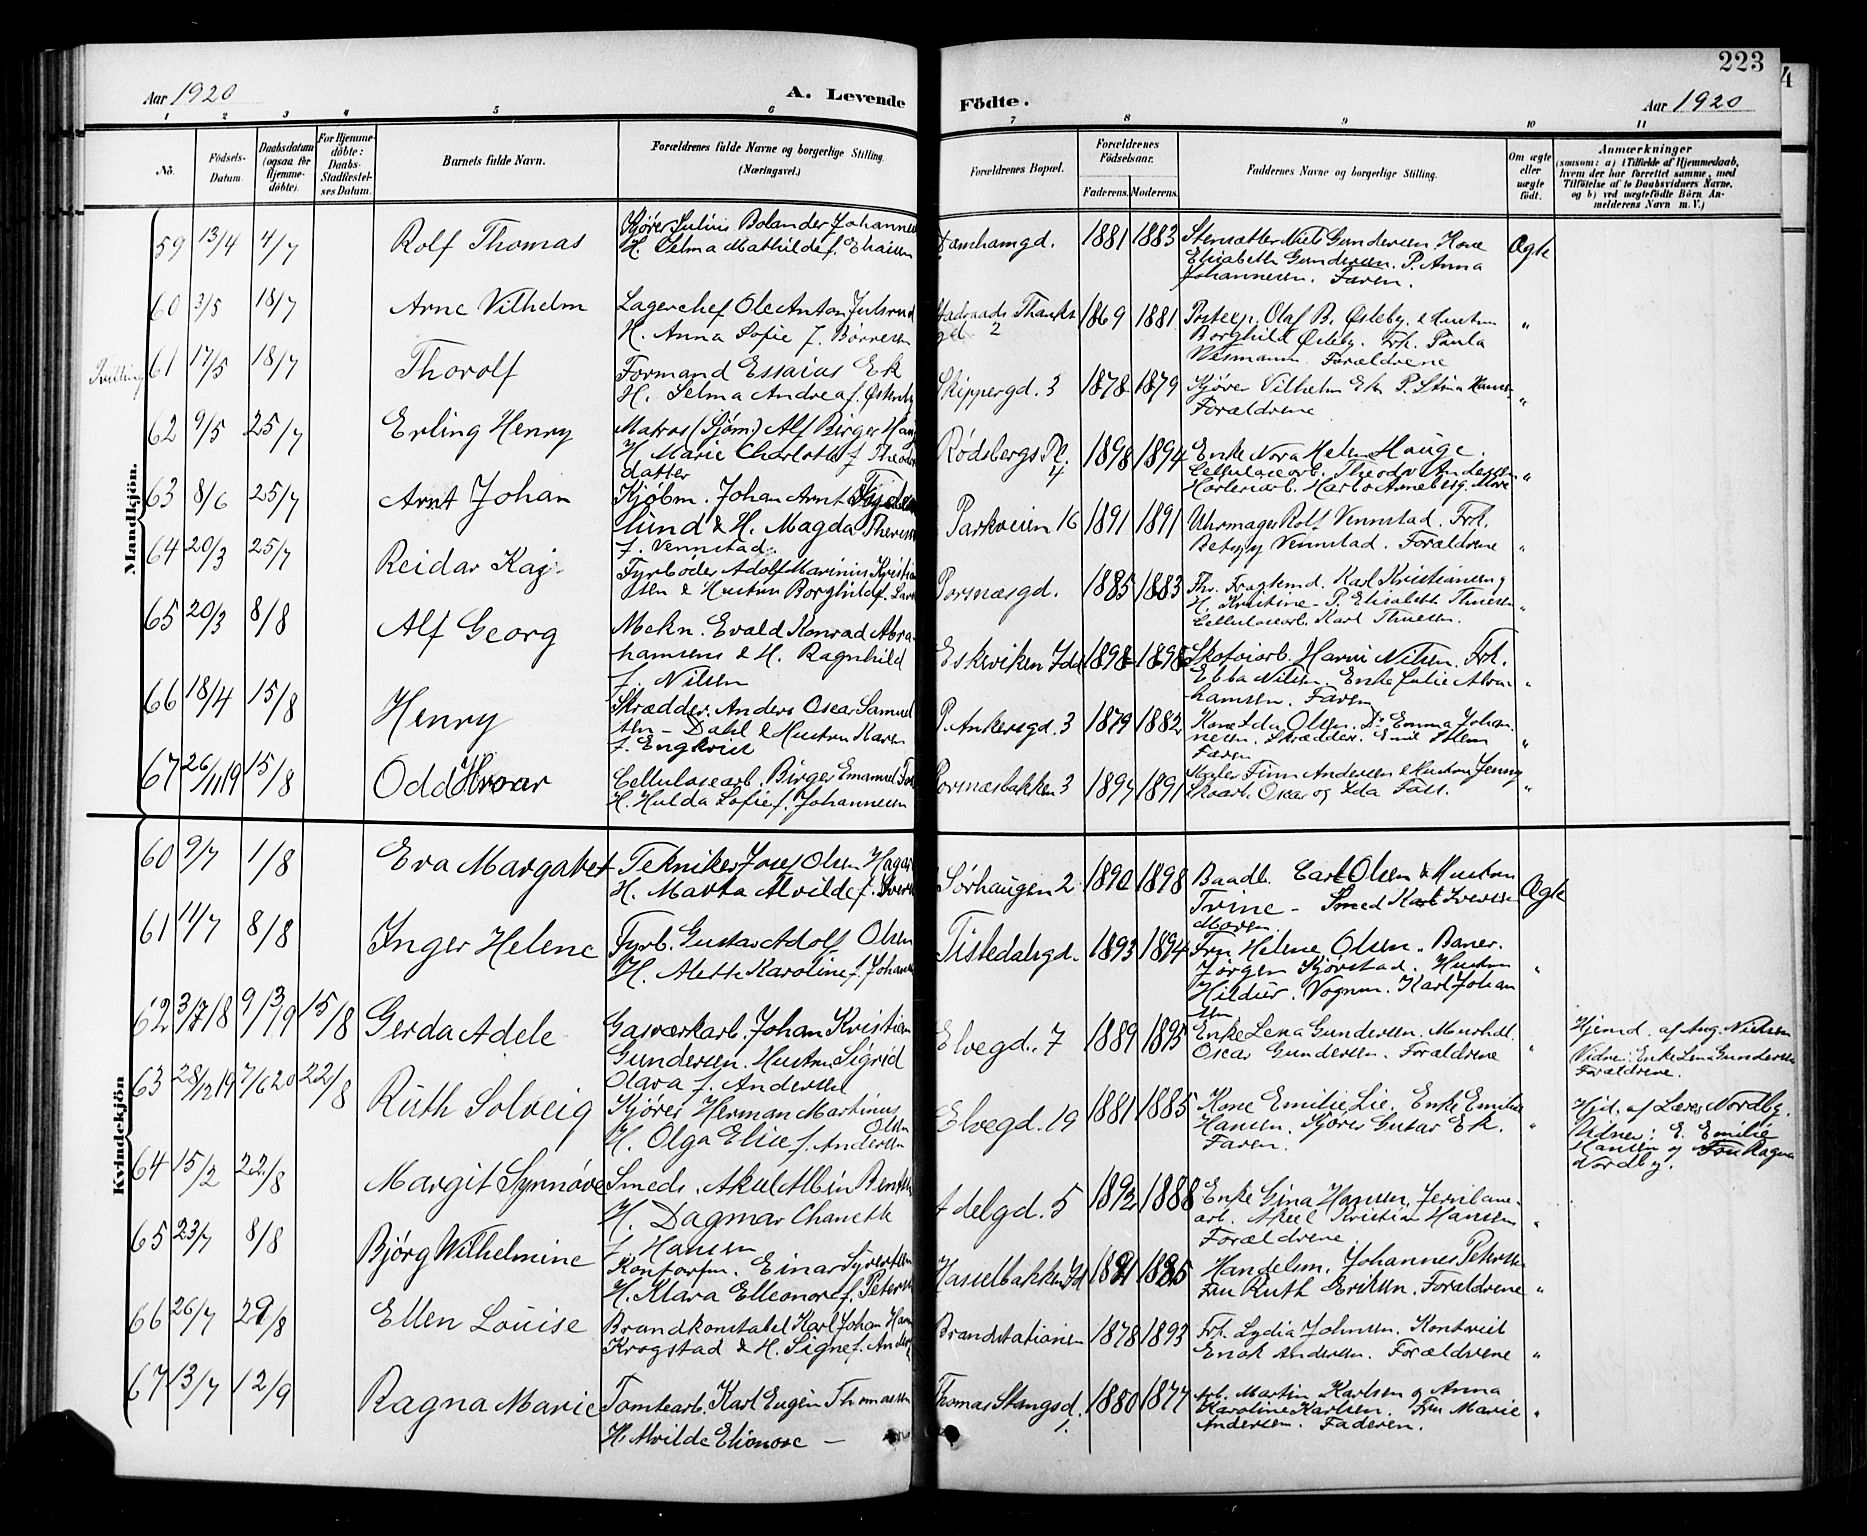 223
Aar 1920
A. Levende
Födte.
Aar 1920
1 2 3 4 5 6 7 8 9 10 11
No.
Födsels-Datum.
Daabsdatum (ogsaa for Hjemme-döbte).
For Hjemme-döbte: Daabs-Stadfæstel-ses Datum.
Barnets fulde Navn.
Forældrenes fulde Navne og borgerlige Stilling. (Næringsvei.)
Forældrenes Bopæl.
Forældrenes Födselsaar.
Faderens. Moderens.
Faddernes Navne og borgerlige Stilling.
Om ægte eller uægte födt.
Anmærkninger
(saasom: a) i Tilfælde af Hjemmedaab, hvem der har forrettet samme, med Tilföielse af to Daabsvidners Navne, og b) ved uægtefödte Börn An-melderens Navn m. V.)
Mandkjön.
59 13/4 4/7 Rolf Thomas
Kjører Julius Bolander Johannes
H. Selma Mathilde f.
Damhamgd. 1881 1883
Stensætter Niels Gundersen. Kone
Elisabeth Gundersen. P. Anna
Johannesen. Faren.
Ægte
60 3/5 18/7 Arne Vilhelm
Lagerchef Ole Anton Julsrud
H. Anna Sofie f. Børresen
Stadraads Thanks
gd 2 1869 1881
Postexp. Olaf B. Østeby. & Hustru
Borghild Østeby. Frk. Paula
Forældrene "
Tvilling
61 17/5 18/7 Thorolf
Formand Essaias Ek
H. Selma Andrea f.
Skippergd. 3 1878 1879
Kjører Vilhelm Ek P. Stina
Forældrene "
62 9/5 25/7 Erling Henry
Matros (Sjøm.) Alf Birger Haug
H. Marie Charlotte f. Theodor
datter
Rødsbergs Pl.
4 1898 1894
Enke Nora Helene Hauge.
Cellulosearb. Theodor Andersen "
63 8/6 25/7 Arnt Johan
Kjøbm. Johan Arnt
lund & H. Magda Therese
f. Vennstad.
Parkveien 16 1891 1891
Uhrmager Rolf Vennstad. Frk.
Betzy Vennstad. Forældrene "
64 20/3 25/7 Reidar Kaj
Fyrbøder Adolf Marinius Kristian
sen & Hustru Borghild f.
Porsnæsgd. 1885 1883
Karl Kristiansen og
H. Kristine - P. Elisabeth Thuesen
Cellulosearb. Karl Thuesen. "
65 20/3 8/8 Alf Georg
Mekn. Evald Konrad Abra-
hamsens & H. Ragnhild
f. Nilsen
Eskeviken Idd 1898 1898
Skotøiarb. Harri Nilsen. Frk.
Ebba Nilsen. Enke Julie Abra-
hamsen. Faren "
66 18/4 15/8 Henry
Skrædder. Anders Oscar Samuel
sen - Dahl & Hustru Karen
f. Engkvist
P. Ankersgd. 3 1879 1882
Kone Ida Olsen. Do Emma Johan
nesen. Skrædder. Emil Olsen
Faren "
67 26/11 19 15/8 Odd Hroar
Cellulosearb. Birger Emanuel
H. Hulda Sofie f. Johannesen
Porsnæsbakken 3 1894 1891
Maler Finn Andersen & Hustru Jenny
Skoarb. Oscar og Ida Foss. "
Kvindekjön
60 9/7 1/8 Eva Margaret
Tekniker Olsen
H. Marta Alvilde f.
Sørhaugen 2 1890 1898
Baadb. Carl Olsen & Hustru
Trine - Smed Karl Iversen
Moren
Ægte
61 11/7 8/8 Inger Helene
Fyrb. Gustav Adolf Olsen
H. Alette Karoline f.
Tistedalsgd. 1893 1894
Fru Helene Olsen. Baner.
Jørgen Kjørstad. Hustru
Hildur. Vognm. Karl Johan
sen "
62 3/7 18 9/3 19 15/8 Gerda Adele
Gasværkarb. Johan Kristian
Gundersen. Hustru Sigrid
Olava f. Andersen
Elvegd. 7 1889 1895
Enke Lena Gundersen. Murhdl.
Oscar Gundersen. Forældrene "
Hjemd. af Aug. Nielsen
Vidner: Enke Lena Gundersen
Forældrene.
63 28/12 19 7/6 20 22/8 Ruth Solveig
Kjører Herman Martinus
Olsen
H. Olga Elise f. Andersen
Elvegd. 19 1881 1885
Kone Emilie Lie. Enke Emilie
Hansen. Kjører Gustav Ek.
Faren. "
Hjd. af Lærer Nordby.
Vidner: E. Emilie
Hansen og Fru Ragna
Nordby.
64 15/2 22/8 Margit Synnøve
Smeds. Aksel Albin
H. Dagmar Chanette
f. Hansen
Adelgd. 5 1892 1888
Enke Gina Hansen. Jernbane-
arb. Aksel Kristian Hansen
Forældrene "
65 23/7 8/8 Bjørg Wilhelmine
Kontorfm. Einar Syvertsen
H. Klara Elleonore f. Petersen
Hasselbakken Idd 1881 1885
Handelsm. Johannes Petersen
Fru Ruth Eriksen. Forældrene "
66 26/7 29/8 Ellen Louise
Brandkonstabel Karl Johan
Krogstad & H. Signe f.
Brandstationen 1878 1893
Frk. Lydia Johnsen. Kontorist
Enok Andersen. Forældrene "
67 13/7 12/9 Ragna Marie
Tomtearb. Karl Eugen Thomassen
H. Alvilde Elionore -
Thomas Stangsgd.
1. 1880 1877
Arb. Martin Karlsen og Anna
Karoline Karlsen. Fru Marie
Andersen. Faderen. "